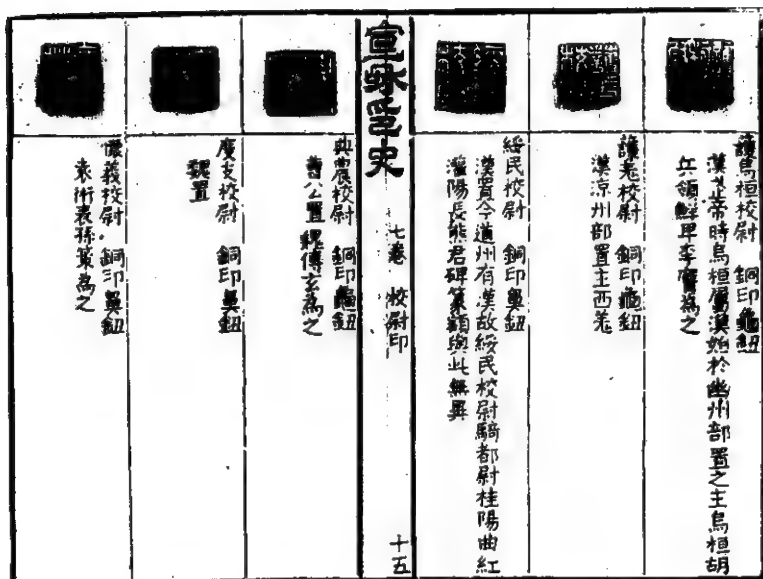 護烏桓校尉 銅印龜鈕
漢武帝時烏桓屬漢始於幽州部置之主烏桓胡
兵領鮮卑李膺為之
護羌校尉 銅印龜鈕
漢涼州部置主西羌
綏民校尉 銅印鼻鈕
漢置今道州有漢故綏民校尉騎都尉桂陽曲紅
灌陽長熊君碑篆額與此無異
宣和印史
七卷 校尉印
十五
典農校尉 銅印龜鈕
曹公置 魏傅玄為之
度支校尉 銅印鼻鈕
魏置
懷義校尉 銅印鼻鈕
袁術表孫策為之